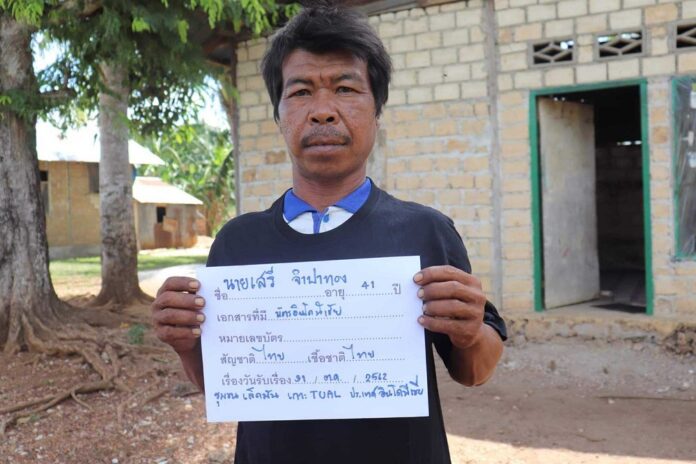 นายเสรี จำปาทอง 41
ชื่อ..........................อายุ..............ปี
เอกสารที่มี บัตรอินโดนีเซีย
หมายเลขบัตร
สัญชาติ ไทย เชื้อชาติ ไทย
เรื่องวันรับเรื่อง 31 / ตค / 2562
ชุมชน เกาะ TUAL ประเทศอินโดนีเซีย